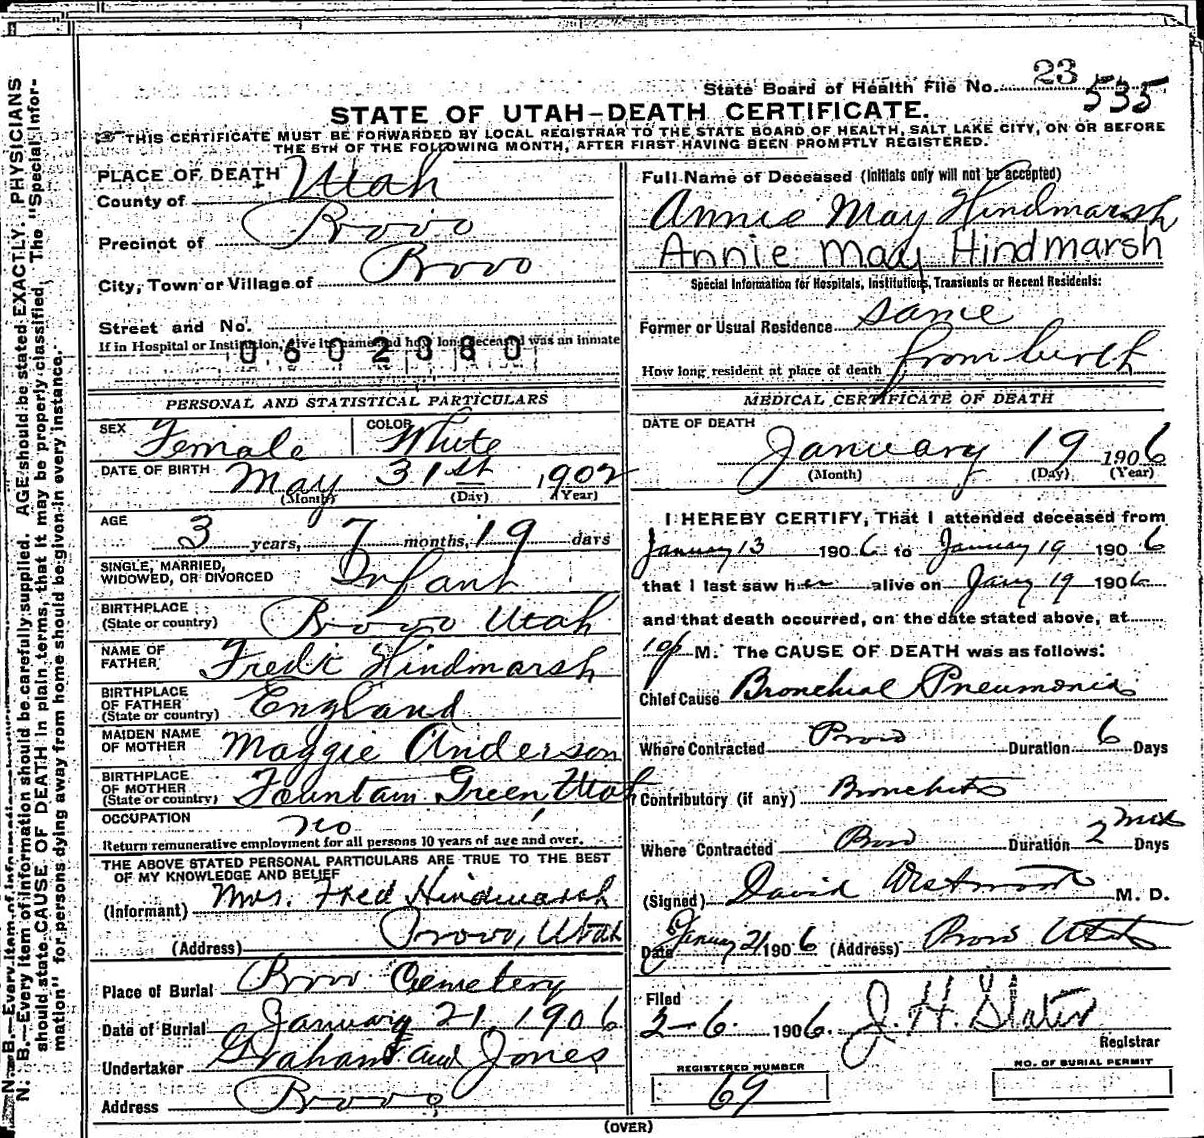 State Board of Health File No. 23
535
STATE OF UTAH-DEATH CERTIFICATE.
THIS CERTIFICATE MUST BE FORWARDED BY LOCAL REGISTRAR TO THE STATE BOARD OF HEALTH, SALT LAKE CITY, ON OR BEFORE
THE 5TH OF THE FOLLOWING MONTH, AFTER FIRST HAVING BEEN PROMPTLY REGISTERED.
PLACE OF DEATH
County of Utah
Precinct of Provo
City, Town or Village of Provo
Street and No.
If in Hospital or Institution, give its name and how long deceased was an inmate
0602380
PERSONAL AND STATISTICAL PARTICULARS
SEX Female COLOR White
DATE OF BIRTH May 31st 1902
(Month) (Day) (Year)
AGE 3 years, 7 months, 19 days
SINGLE, MARRIED,
WIDOWED, OR DIVORCED Infant
BIRTHPLACE
(State or country) Provo Utah
NAME OF
FATHER Fredk Hindmarsh
BIRTHPLACE
OF FATHER
(State or country) England
MAIDEN NAME
OF MOTHER Maggie Anderson
BIRTHPLACE
OF MOTHER
(State or country) Fountain Green, Utah
OCCUPATION no
Return remunerative employment for all persons 10 years of age and over.
THE ABOVE STATED PERSONAL PARTICULARS ARE TRUE TO THE BEST
OF MY KNOWLEDGE AND BELIEF
(Informant) Mrs. Fred Hindmarsh
(Address) Provo, Utah
Place of Burial Provo Cemetery
Date of Burial January 21 1906
Undertaker Graham and Jones
Address Provo
Full Name of Deceased (Initials only will not be accepted)
Annie May Hindmarsh
Annie May Hindmarsh
Special Information for Hospitals, Institutions, Transients or Recent Residents:
Former or Usual Residence same
How long resident at place of death from birth
MEDICAL CERTIFICATE OF DEATH
DATE OF DEATH
January 19 1906
(Month) (Day) (Year)
I HEREBY CERTIFY, That I attended deceased from
January 13 1906 to January 19 1906
that I last saw her alive on Jany 19 1906
and that death occurred, on the date stated above, at
10 p M. The CAUSE OF DEATH was as follows:
Chief Cause Bronchial Pneumonia
Where Contracted Provo Duration 6 Days
Contributory (if any) Bronchitis
Where Contracted Provo Duration 2 Days
(Signed) David Westwood M. D.
Date Jany 21 1906 (Address) Provo Utah
Filed
2-6. 1906. J. H. Slater
Registrar
REGISTERED NUMBER
69
NO. OF BURIAL PERMIT
(OVER)
N. B.—Every item of information should be carefully supplied. AGE should be stated EXACTLY. PHYSICIANS
should state CAUSE OF DEATH in plain terms, that it may be properly classified. The "Special Infor-
mation" for persons dying away from home should be given in every instance.